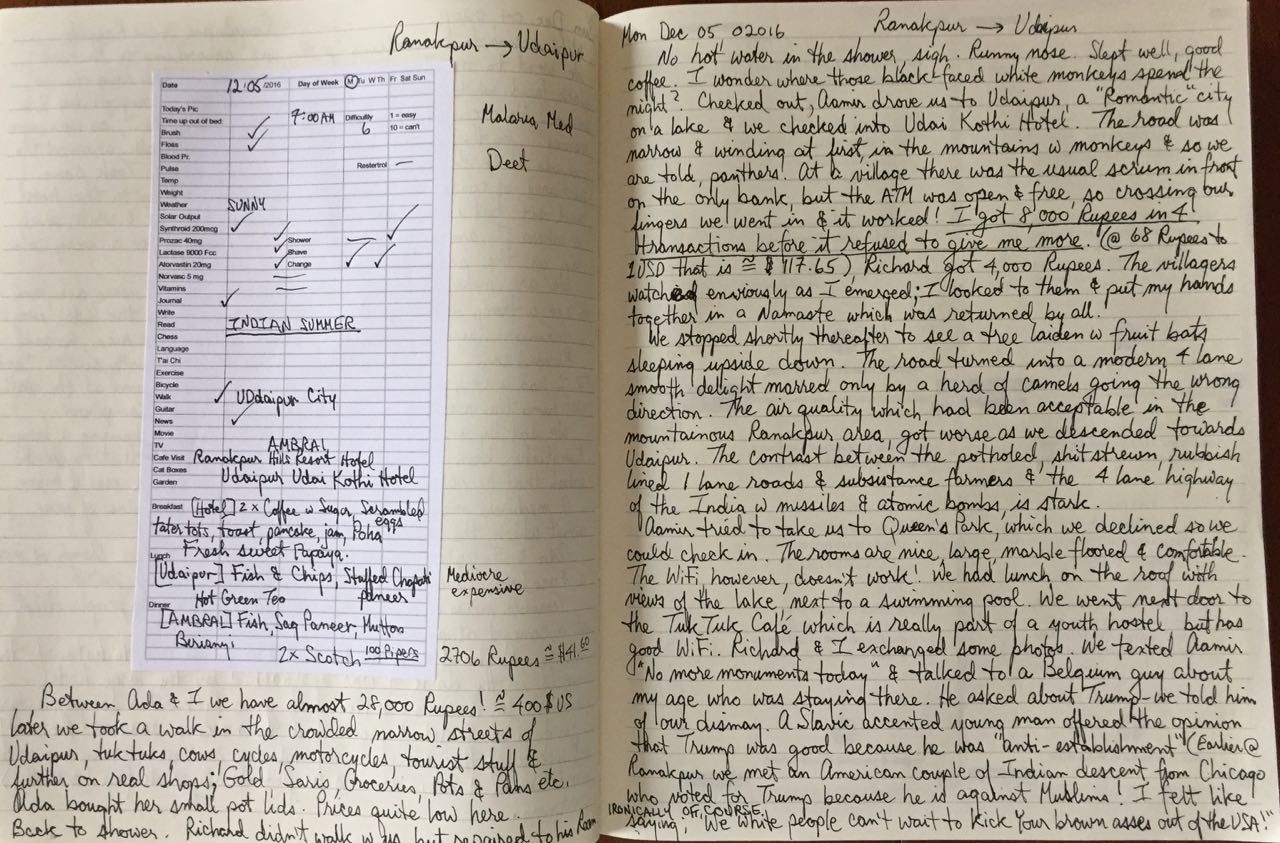 Ranakpur → Udaipur
Date 12.05/2016 Day of Week M Tu W Th Fr Sat Sun
Today's Pic
Time up out of bed 7:00AM Difficulty 6 1 = easy 10 = can't
Brush
Floss
Blood Pr.
Pulse Restertrol
Temp
Weight
Weather SUNNY
Solar Output
Synthroid 200mcg
Prozac 40mg Shower
Lactase 9000 Fcc Shave
Atorvastin 20mg Change
Norvasc 5 mg
Vitamins
Journal
Write
Read INDIAN SUMMER
Chess
Language
T'ai Chi
Exercise
Bicycle
Walk UDdaipur City
Guitar
News
Movie
TV AMBRAI
Cafe Visit Ranakpur Hills Resort Hotel
Cat Boxes Udaipur Udai Kothi Hotel
Garden
Breakfast [Hotel] 2 x Coffee w Sugar, Scrambled eggs
tater tots, toast, pancake, jam, Poha
Fresh sweet Papaya.
Lunch
[Udaipur] Fish & Chips, Stuffed Chapati paneer
Hot Green Tea
Dinner
[AMBRAI] Fish, Saq Paneer, Mutton
Berianyi
2x Scotch 100 Pipers
Malaria Med
Deet
Mediocre
expensive
2706 Rupees ≅ $41.60
Between Ada & I we have almost 28,000 Rupees! ≅ 400$ US
Later we took a walk in the crowded narrow streets of
Udaipur, tuktuks, cows, cycles, motorcycles, tourist stuff &
further on real shops; Gold, Saris, Groceries, Pots & Pans etc.
Ada bought her small pot lids. Prices quite low here.
Back to shower. Richard didn't walk w us but repaired to his Room
Mon Dec 05 02016 Ranakpur → Udaipur
No hot water in the shower, sigh. Runny nose. Slept well, good
coffee. I wonder where those black-faced white monkeys spend the
night? Checked out, Aamir drove us to Udaipur, a "Romantic" city
on a lake & we checked into Udai Kothi Hotel. The road was
narrow & winding at first, in the mountains w monkeys & so we
are told, panthers. At a village there was the usual scrum in front
on the only bank, but the ATM was open & free, so crossing our
fingers we went in & it worked! I got 8,000 Rupees in 4
transactions before it refused to give me more. (@ 68 Rupees to
1USD that is ≅ $117.65) Richard got 4,000 Rupees. The villagers
watched enviously as I emerged; I looked to them & put my hands
together in a Namaste which was returned by all.
We stopped shortly thereafter to see a tree laiden w fruit bats
sleeping upside down. The road turned into a modern 4 lane
smooth delight marred only by a herd of camels going the wrong
direction. The air quality which had been acceptable in the
mountainous Ranakpur area, got worse as we descended towards
Udaipur. The contrast between the potholed, shit strewn, rubbish
lined 1 lane roads & subsistance farmers & the 4 lane highway
of the India w missiles & atomic bombs, is stark.
Aamir tried to take us to Queen's Park, which we declined so we
could check in. The rooms are nice, large, marble floored & comfortable.
The WiFi, however, doesn't work! We had lunch on the roof with
views of the lake, next to a swimming pool. We went next door to
the TukTuk Café which is really part of a youth hostel but has
good WiFi. Richard & I exchanged some photos. We texted Aamir
"No more monuments today" & talked to a Belgium guy about
my age who was staying there. He asked about Trump - we told him
of our dismay. A Slavic accented young man offered the opinion
that Trump was good because he was "anti-establishment" (Earlier @
Ranakpur we met an American couple of Indian descent from Chicago
who voted for Trump because he is against Muslims! I felt like
IRONICALLY OF COURSE,
saying, "We white people can't wait to kick your brown asses out of the USA!"